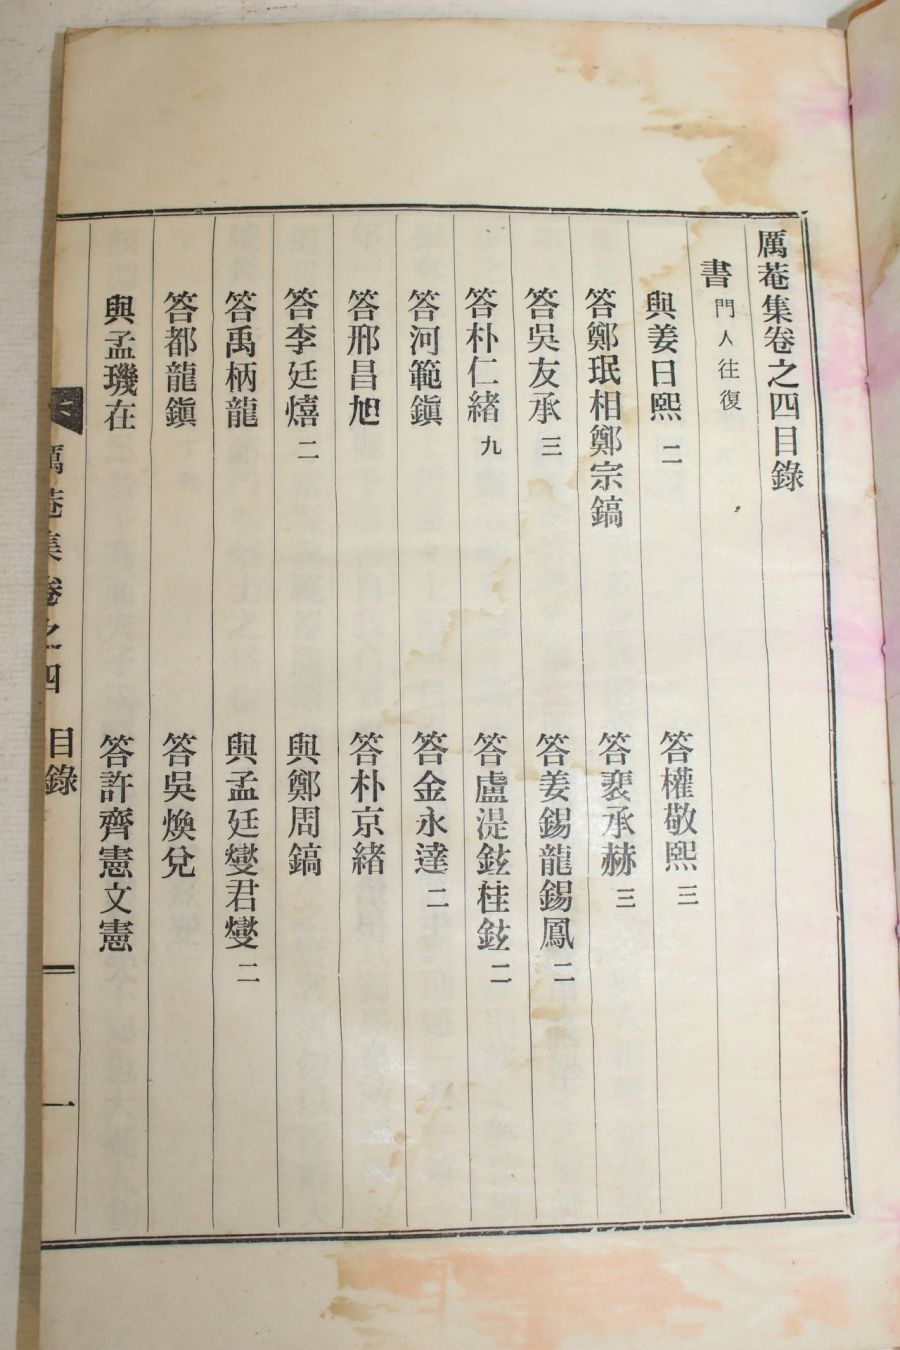 厲菴集卷之四目錄
書 門人往復
與姜日熙 二
答權敬熙 三
答鄭珉相鄭宗鎬
答裵承赫 三
答吳友承 三
答姜錫龍錫鳳 二
答朴仁緖 九
答盧湜鉉桂鉉 二
答河範鎭
答金永達 二
答邢昌旭
答朴京緖
答李廷熺 二
與鄭周鎬
答禹柄龍
與孟廷燮君燮 二
答都龍鎭
答吳煥兌
與孟璣在
答許齊憲文憲
厲菴集卷之四 目錄 一